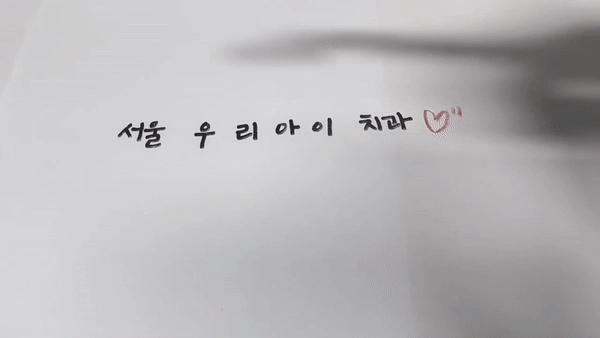 서울 우리아이 치과 ♡"